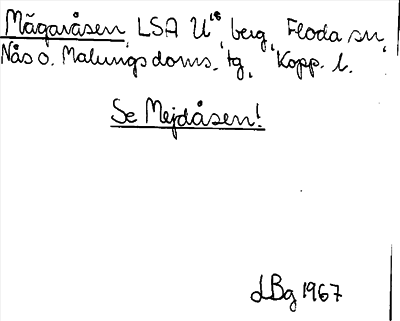 Mågavåsen, LSA U¹⁸, berg, Floda sn,
Nås o. Malungs doms. tg, Kopp. l.
Se Mejdåsen!
LBg 1967